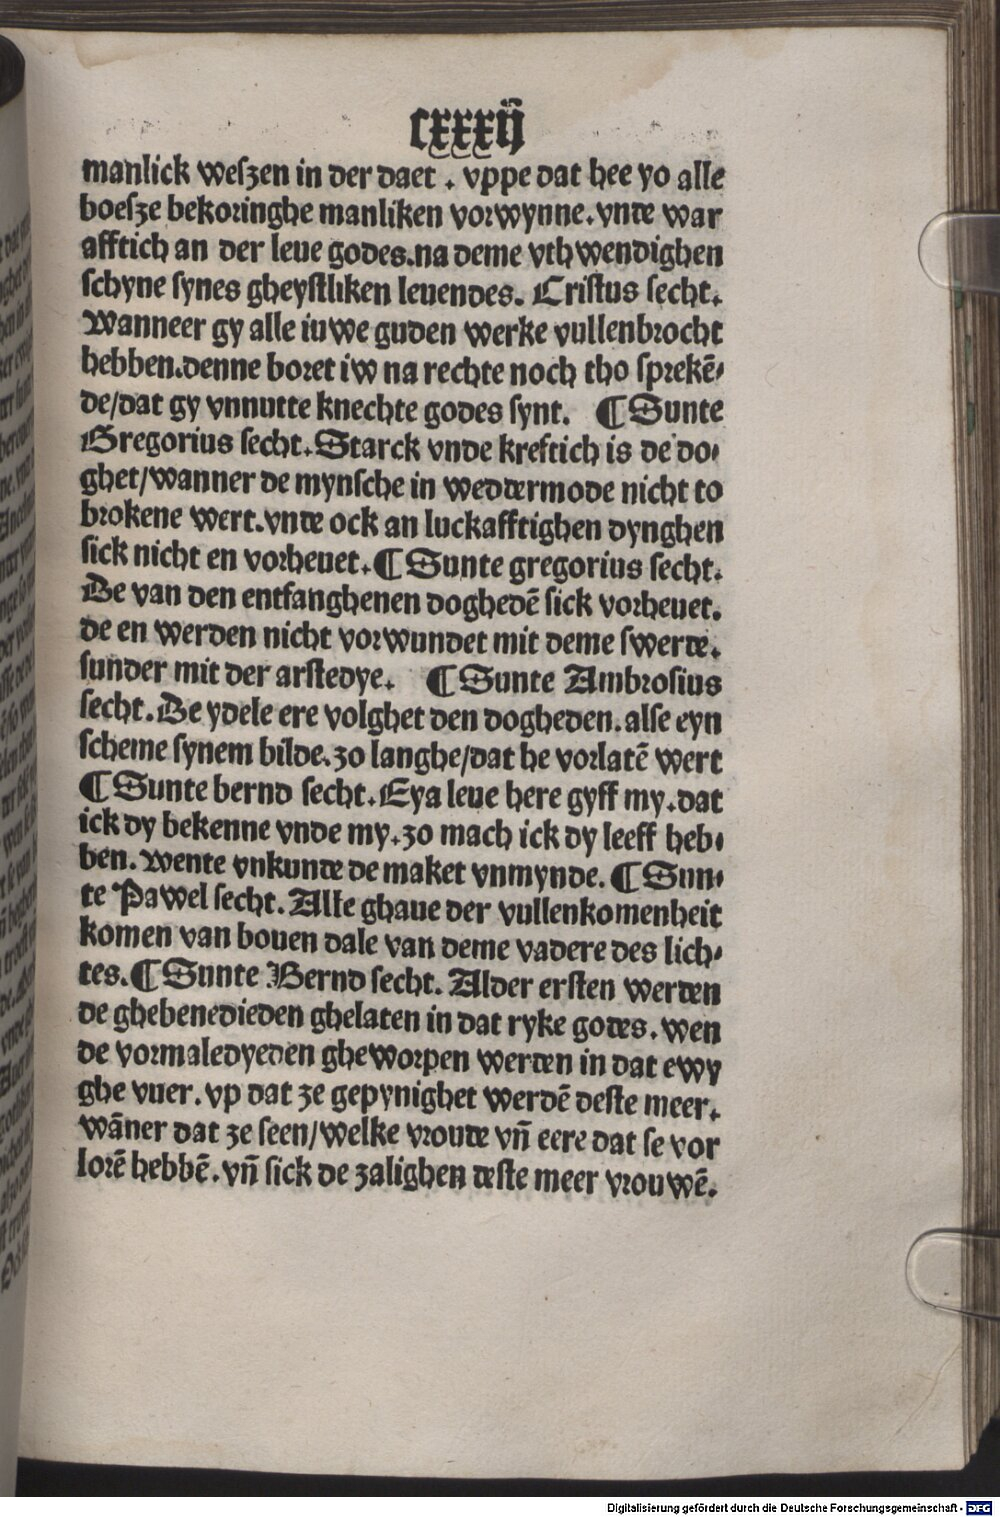 cxxxij
manlick weſzen in der daet . vppe dat hee yo alle
boeſze bekoringhe manliken vorwynne. vnde war
afftich an der leue godes. na deme vthwendighen
ſchyne ſynes gheyſtliken leuendes. Criſtus ſecht.
Wanneer gy alle iuwe guden werke vullenbrocht
hebben. denne boret iw na rechte noch tho ſprekē⸗
de/dat gy vnnutte knechte godes ſynt. ¶ Sunte
Gregorius ſecht. Starck vnde kreftich is de do⸗
ghet/wanner de mynſche in weddermode nicht to
brokene wert. vnde ock an luckafftighen dynghen
ſick nicht en vorheuet. ¶ Sunte gregorius ſecht.
De van den entfanghenen doghedē ſick vorheuet.
de en werden nicht vorwundet mit deme ſwerde.
ſunder mit der arſtedye. ¶ Sunte Ambroſius
ſecht. De ydele ere volghet den dogheden. alſe eyn
ſcheme ſynem bilde. zo langhe/dat he vorlatē wert
¶ Sunte bernd ſecht. Eya leue here gyff my. dat
ick dy bekenne vnde my. zo mach ick dy leeff heb⸗
ben. Wente vnkunde de maket vnmynde. ¶ Sun⸗
te Pawel ſecht. Alle ghaue der vullenkomenheit
komen van bouen dale van deme vadere des lich⸗
tes. ¶ Sunte Bernd ſecht. Alder erſten werden
de ghebenedieden ghelaten in dat ryke godes. wen
de vormaledyeden gheworpen werden in dat ewy
ghe vuer. vp dat ze gepynighet werdē deſte meer.
wāner dat ze ſeen/welke vroude vn̄ eere dat ſe vor
lorē hebbē. vn̄ ſick de zalighen deſte meer vrouwē.
Digitalisierung gefördert durch die Deutsche Forschungsgemeinschaft - DFG